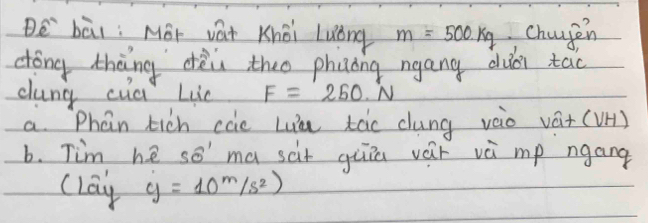 Đề bài: Một vật khối lượng m = 500 kg. Chuyển
động thẳng đều theo phương ngang dưới tác
dụng của lực F = 250.N
a. Phân tích các lực tác dụng vào vật (VH)
b. Tìm hệ số ma sát giữa vật và mp ngang
(lấy g = 10 m/s²)